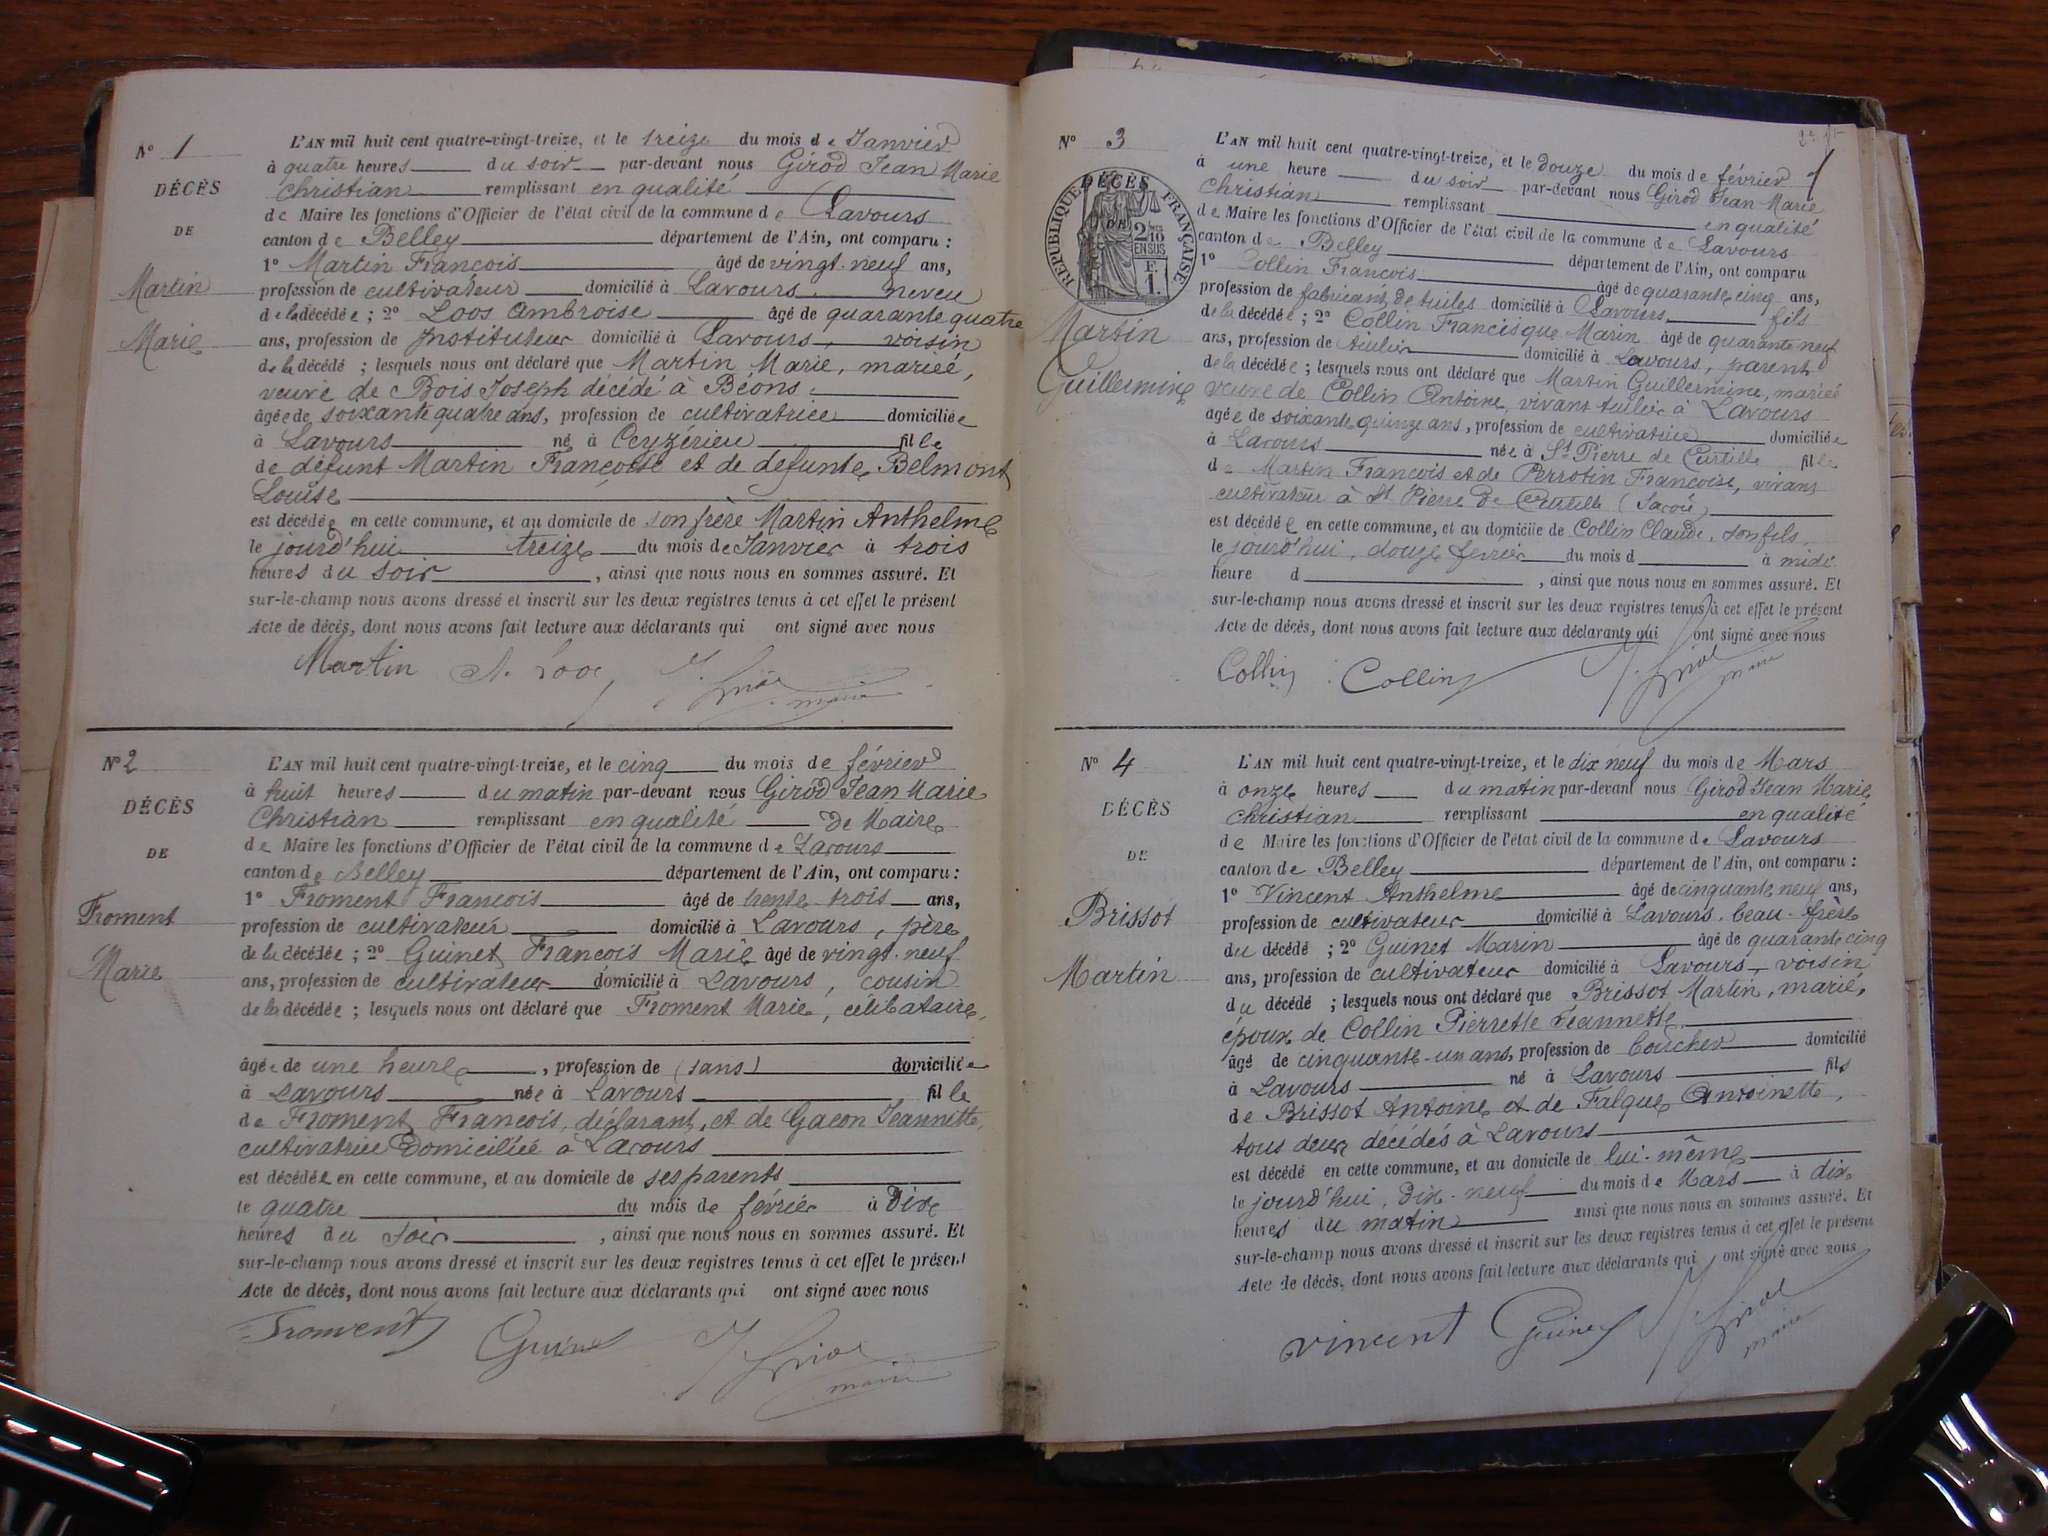 N° 1
DÉCÈS
DE
Martin
Marie
L'AN mil huit cent quatre-vingt-treize, et le treize du mois de Janvier
à quatre heures du soir par-devant nous Girod Jean Marie
Christian remplissant en qualité
de Maire les fonctions d'Officier de l'état civil de la commune de Lavours
canton de Belley département de l'Ain, ont comparu :
1° Martin François âgé de vingt-neuf ans,
profession de cultivateur domicilié à Lavours, neveu
de la décédée ; 2° Loos Ambroise âgé de quarante quatre
ans, profession de Instituteur domicilié à Lavours, voisin
de la décédé ; lesquels nous ont déclaré que Martin Marie, mariée,
veuve de Bois Joseph décédé à Béons.
âgée de soixante quatre ans, profession de cultivatrice domiciliée
à Lavours né à Ceyzérieu fille
de défunt Martin Françoise et de defunte Belmont
Louise
est décédée en cette commune, et au domicile de son frère Martin Anthelme
le jourd'hui treize du mois de Janvier à trois
heures du soir, ainsi que nous nous en sommes assuré. Et
sur-le-champ nous avons dressé et inscrit sur les deux registres tenus à cet effet le présent
Acte de décès, dont nous avons fait lecture aux déclarants qui ont signé avec nous
Martin A. Loos J. Girod
maire
N° 2
DÉCÈS
DE
Froment
Marie
L'AN mil huit cent quatre-vingt-treize, et le cinq du mois de février
à huit heures du matin par-devant nous Girod Jean Marie
Christian remplissant en qualité de Maire
de Maire les fonctions d'Officier de l'état civil de la commune de Lavours
canton de Belley département de l'Ain, ont comparu :
1° Froment François âgé de trente-trois ans,
profession de cultivateur domicilié à Lavours, père
de la décédée ; 2° Guinet François Marie âgé de vingt-neuf
ans, profession de cultivateur domicilié à Lavours, cousin
de la décédée ; lesquels nous ont déclaré que Froment Marie, célibataire,
âgée de une heure, profession de (sans) domiciliée
à Lavours née à Lavours fille
de Froment François, déclarant, et de Gacon Jeannette,
cultivatrice Domiciliée à Lavours
est décédée en cette commune, et au domicile de ses parents
le quatre du mois de février à Dix
heures du soir, ainsi que nous nous en sommes assuré. Et
sur-le-champ nous avons dressé et inscrit sur les deux registres tenus à cet effet le présent
Acte de décès, dont nous avons fait lecture aux déclarants qui ont signé avec nous
Froment Guinet J. Girod
maire
N° 3
DÉCÈS
DE
RÉPUBLIQUE FRANÇAISE
2/10
EN SUS
F.
1.
Martin
Guillermine
L'AN mil huit cent quatre-vingt-treize, et le douze du mois de février
à une heure du soir par-devant nous Girod Jean Marie
Christian remplissant en qualité
de Maire les fonctions d'Officier de l'état civil de la commune de Lavours
canton de Belley département de l'Ain, ont comparu
1° Collin François âgé de quarante cinq ans,
profession de fabricant de tuiles domicilié à Lavours fils
de la décédée ; 2° Collin Francisque Marin âgé de quarante neuf
ans, profession de tuilier domicilié à Lavours, parent
de la décédée ; lesquels nous ont déclaré que Martin Guillermine, mariée
veuve de Collin Antoine, vivant tuilier à Lavours
agée de soixante quinze ans, profession de cultivatrice domiciliée
à Lavours née à St Pierre de Curtille fille
de Martin François et de Perrotin Françoise, vivant
cultivateur à St Pierre de Curtille (Savoie)
est décédée en cette commune, et au domicile de Collin Claude, son fils,
le jourd'hui, douze février du mois d à midi
heure d, ainsi que nous nous en sommes assuré. Et
sur-le-champ nous avons dressé et inscrit sur les deux registres tenus à cet effet le présent
Acte de décès, dont nous avons fait lecture aux déclarants qui ont signé avec nous
Collin Collin J. Girod
maire
N° 4
DÉCÈS
DE
Brissot
Martin
L'AN mil huit cent quatre-vingt-treize, et le dix neuf du mois de Mars
à onze heures du matin par-devant nous Girod Jean Marie
Christian remplissant en qualité
de Maire les fonctions d'Officier de l'état civil de la commune de Lavours
canton de Belley département de l'Ain, ont comparu :
1° Vincent Anthelme âgé de cinquante neuf ans,
profession de cultivateur domicilié à Lavours, beau-frère
du décédé ; 2° Guinet Marin âgé de quarante cinq
ans, profession de cultivateur domicilié à Lavours, voisin
du décédé ; lesquels nous ont déclaré que Brissot Martin, marié,
époux de Collin Pierrette Jeannette,
âgé de cinquante-un ans, profession de boucher domicilié
à Lavours né à Lavours fils
de Brissot Antoine et de Falque Antoinette,
tous deux décédés à Lavours
est décédé en cette commune, et au domicile de lui-même
le jourd'hui, Dix-neuf du mois de Mars à dix
heures du matin ainsi que nous nous en sommes assuré. Et
sur-le-champ nous avons dressé et inscrit sur les deux registres tenus à cet effet le présent
Acte de décès, dont nous avons fait lecture aux déclarants qui ont signé avec nous
Vincent Guinet J. Girod
maire